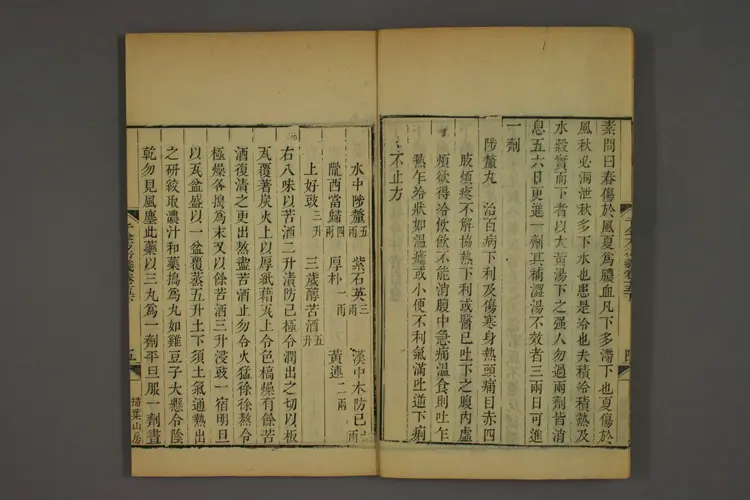 素問曰春傷於風夏為膿血凡下多滯下也夏傷於
風秋必洞泄秋多下水也患是冷也夫積冷積熱及
水穀實而下者以大黃湯下之强人勿過兩劑皆消
息五六日更進一劑其補澀湯不效者三兩日可進
一劑
陟釐丸 治百病下利及傷寒身熱頭痛目赤四
肢煩疼不解協熱下利或醫已吐下之腹內虛
煩欲得冷飲飲不能消腹中急痛溫食則吐乍
熱乍冷狀如溫瘧或小便不利氣滿吐逆下痢
不止方
水中陟釐五兩 紫石英三兩 漢中木防己六兩
隴西當歸四兩 厚朴一兩 黃連二兩
上好豉三升 三歲醇苦酒五升
右八味以苦酒二升漬防己極令潤出之切以板
瓦覆著炭火上以厚紙藉瓦上令色槁燥有餘苦
酒復漬之更出熬盡苦酒止勿令火猛徐徐熬令
極燥各搗為末又以餘苦酒三升浸豉一宿明旦
以瓦盆盛以一盆覆蒸五升土下須土氣通熱出
之研絞取濃汁和藥搗為丸如雞豆子大懸令陰
乾勿見風塵此藥以三丸為一劑平旦服一劑晝
五
掃葉山房